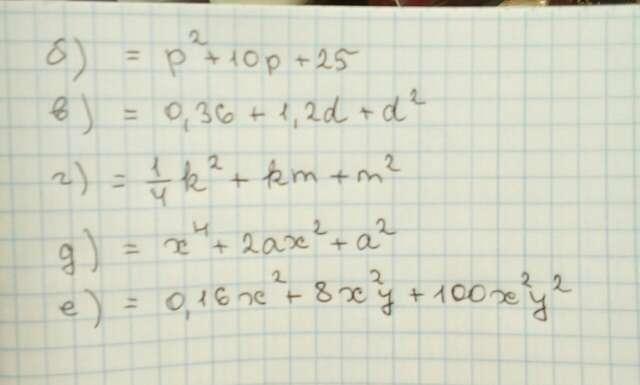 б) = p² + 10p + 25
в) = 0,36 + 1,2d + d²
г) = 1/4 k² + km + m²
д) = x⁴ + 2ax² + a²
е) = 0,16x² + 8x²y + 100x²y²